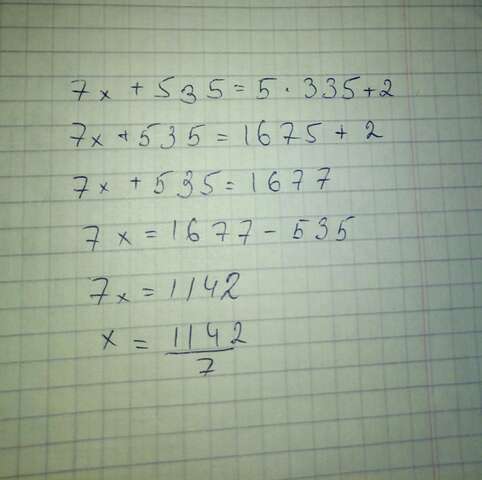 7x + 535 = 5 · 335 + 2
7x + 535 = 1675 + 2
7x + 535 = 1677
7x = 1677 - 535
7x = 1142
x = 1142/7